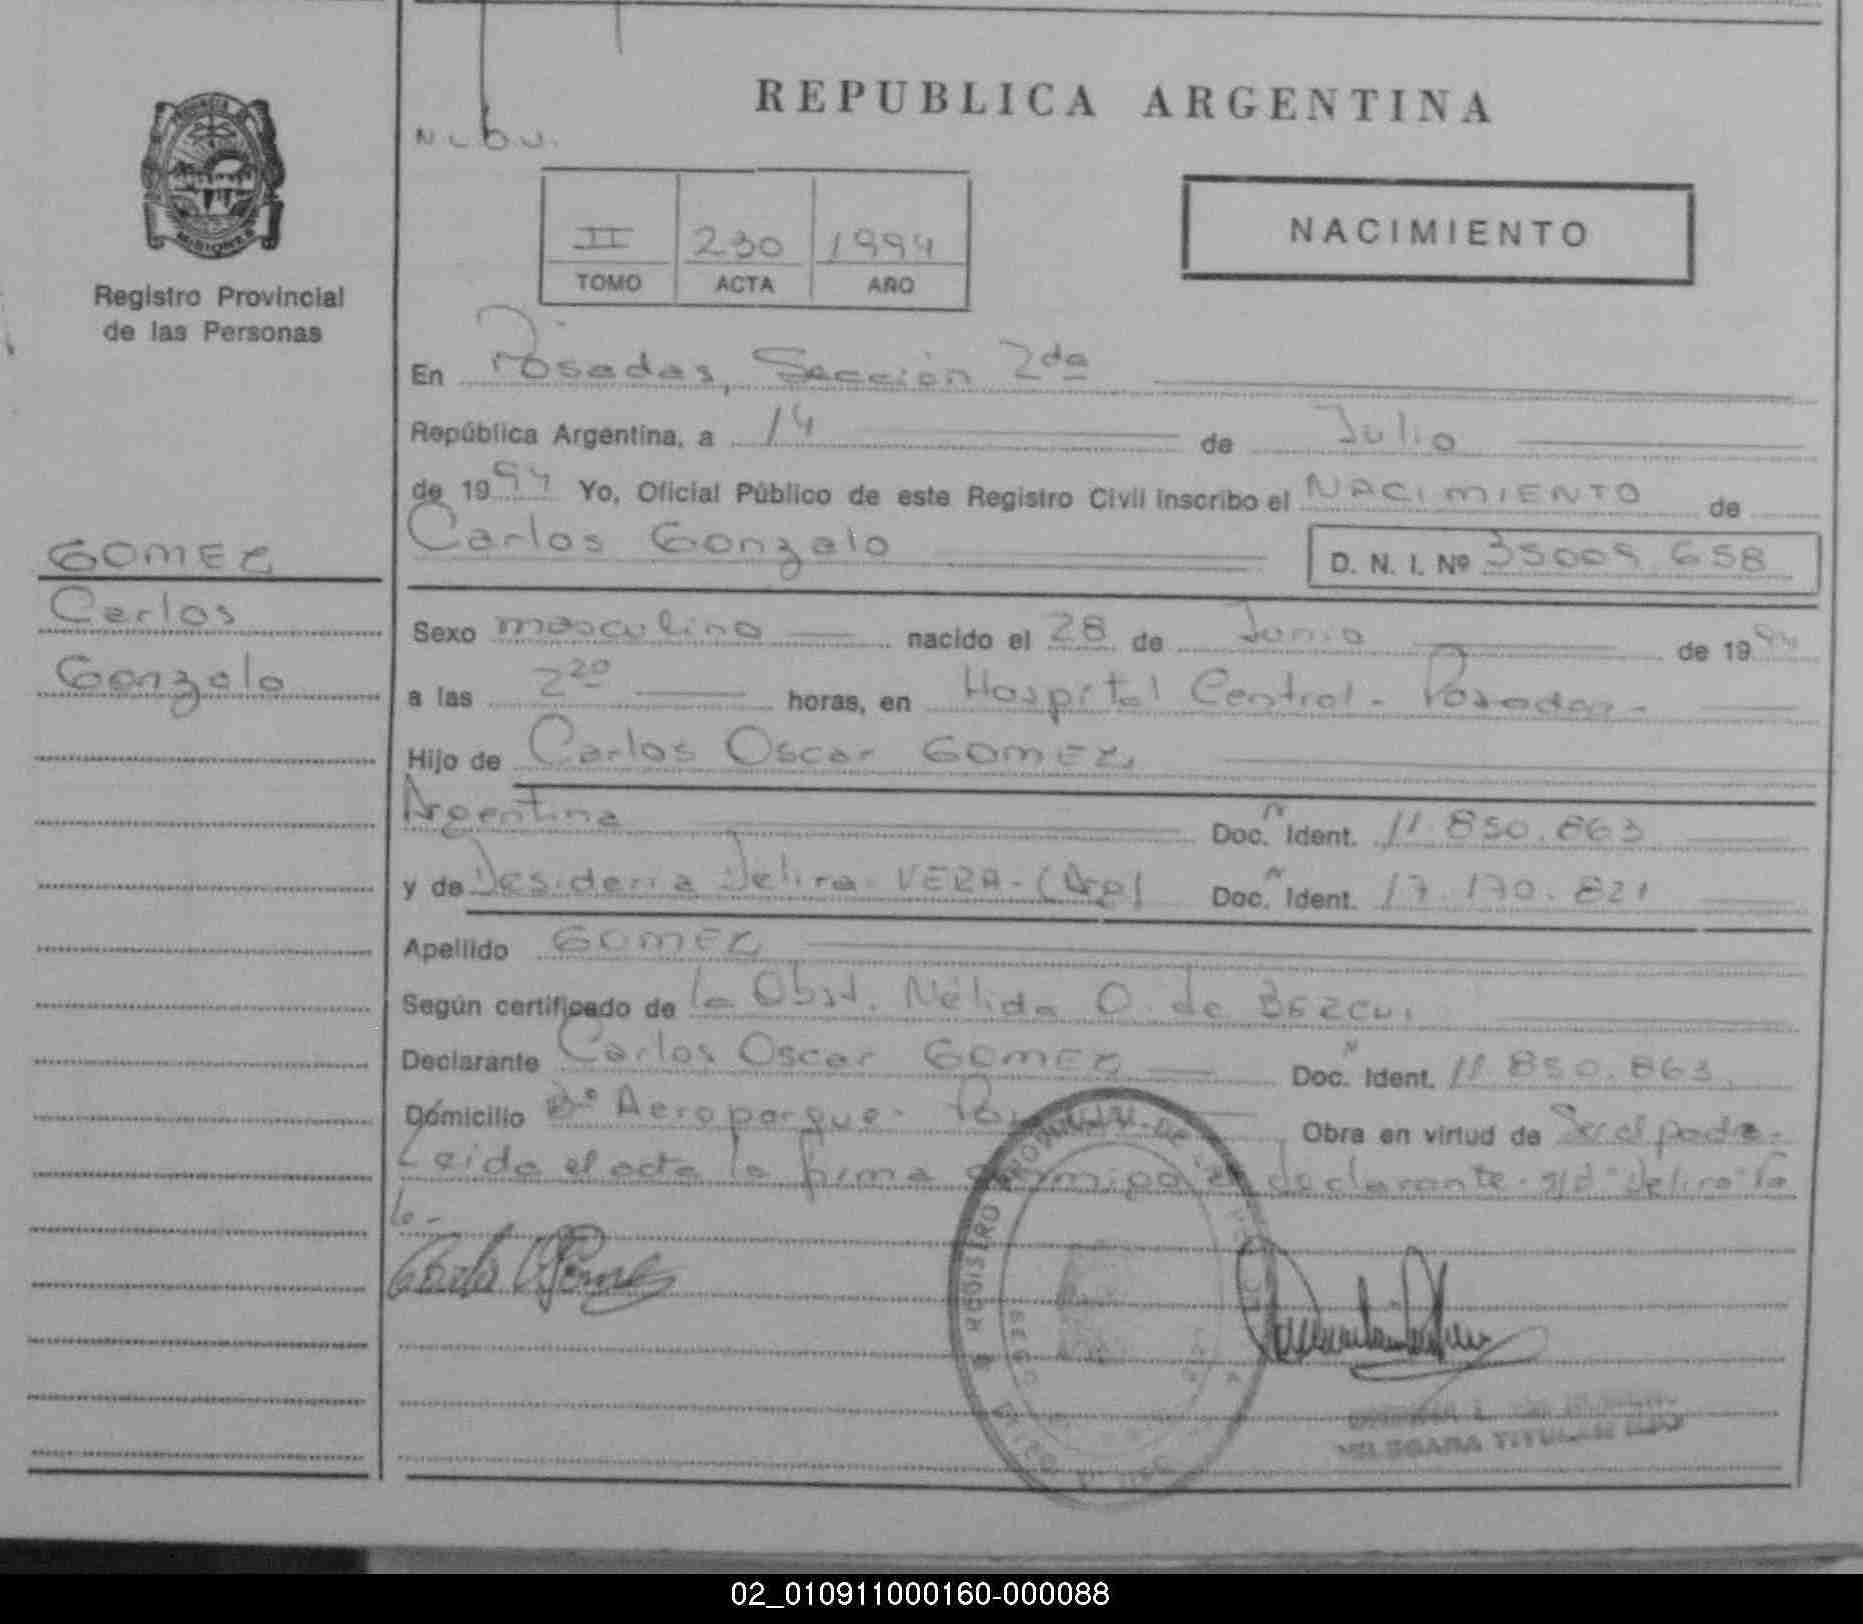 REPUBLICA ARGENTINA
PROVINCIA
MISIONES
Registro Provincial
de las Personas
II 230 1994
TOMO ACTA AÑO
NACIMIENTO
En Posadas, Sección 2da
República Argentina, a 14 de Julio
de 1994 Yo, Oficial Público de este Registro Civil inscribo el NACIMIENTO de
Carlos Gonzalo D. N. I. Nº 35009.658
GOMEZ
Carlos
Gonzalo
Sexo masculino nacido el 28 de Junio de 1994
a las 2 20 horas, en Hospital Central - Posadas -
Hijo de Carlos Oscar GOMEZ,
Argentina Doc. Ident. 11.850.863
y de Desideria Delira - VERA - (Arg) Doc. Ident. 17.170.821
Apellido GOMEZ
Según certificado de la Obst. Nélida O. de
Declarante Carlos Oscar GOMEZ Doc. Ident. 11.850.863
Domicilio Bº Aeroparque - Obra en virtud de Ser el padre -
Leida el acta la firma conmigo el declarante - s/d "Delira" Va
le -
REGISTRO PROVINCIAL DE LAS
DELEGADA TITULAR
02_010911000160-000088